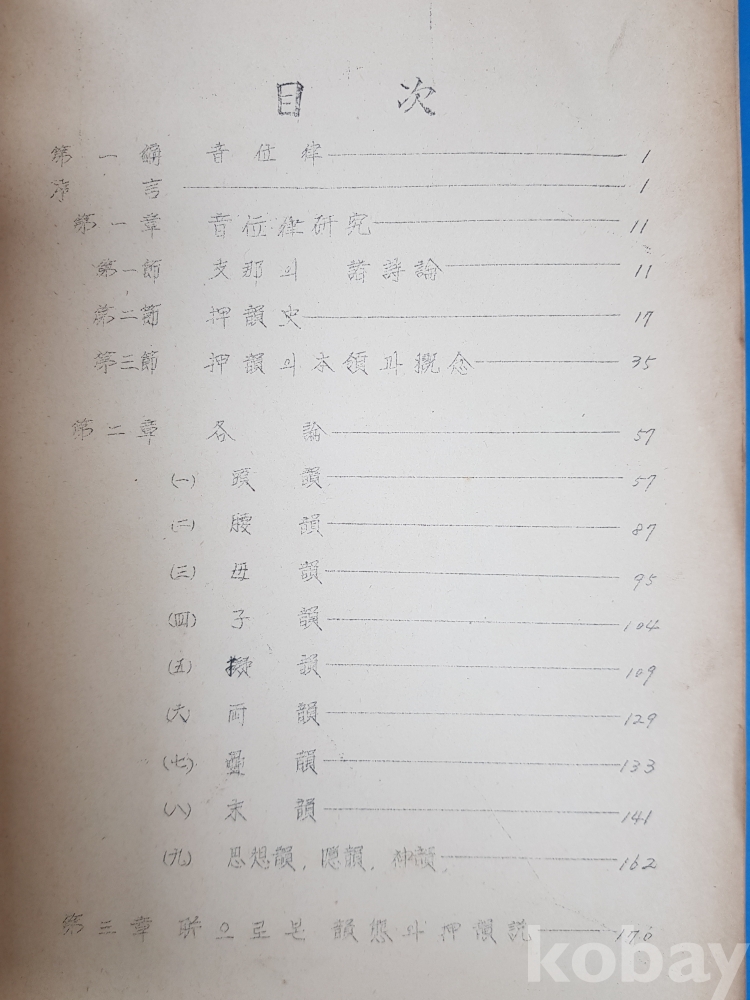 目 次
第一編 音位律 1
序言 1
第一章 音位律研究 11
第一節 支那의 諸詩論 11
第二節 押韻史 17
第三節 押韻의 本領과 概念 35
第二章 各論 57
(一) 頭韻 57
(二) 腰韻 87
(三) 母韻 95
(四) 子韻 104
(五) 擬韻 109
(六) 両韻 129
(七) 疊韻 133
(八) 末韻 141
(九) 思想韻, 隱韻, 神韻 162
第三章 聯으로본 韻態와 押韻説 170
kobay